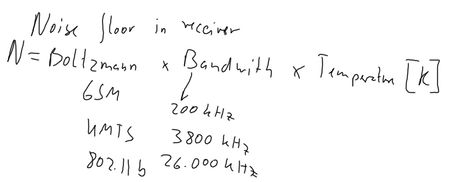 Noise floor in receiver
N = Boltzmann x Bandwith x Temperature [K]
GSM 200 kHz
UMTS 3800 kHz
802.11b 26.000 kHz